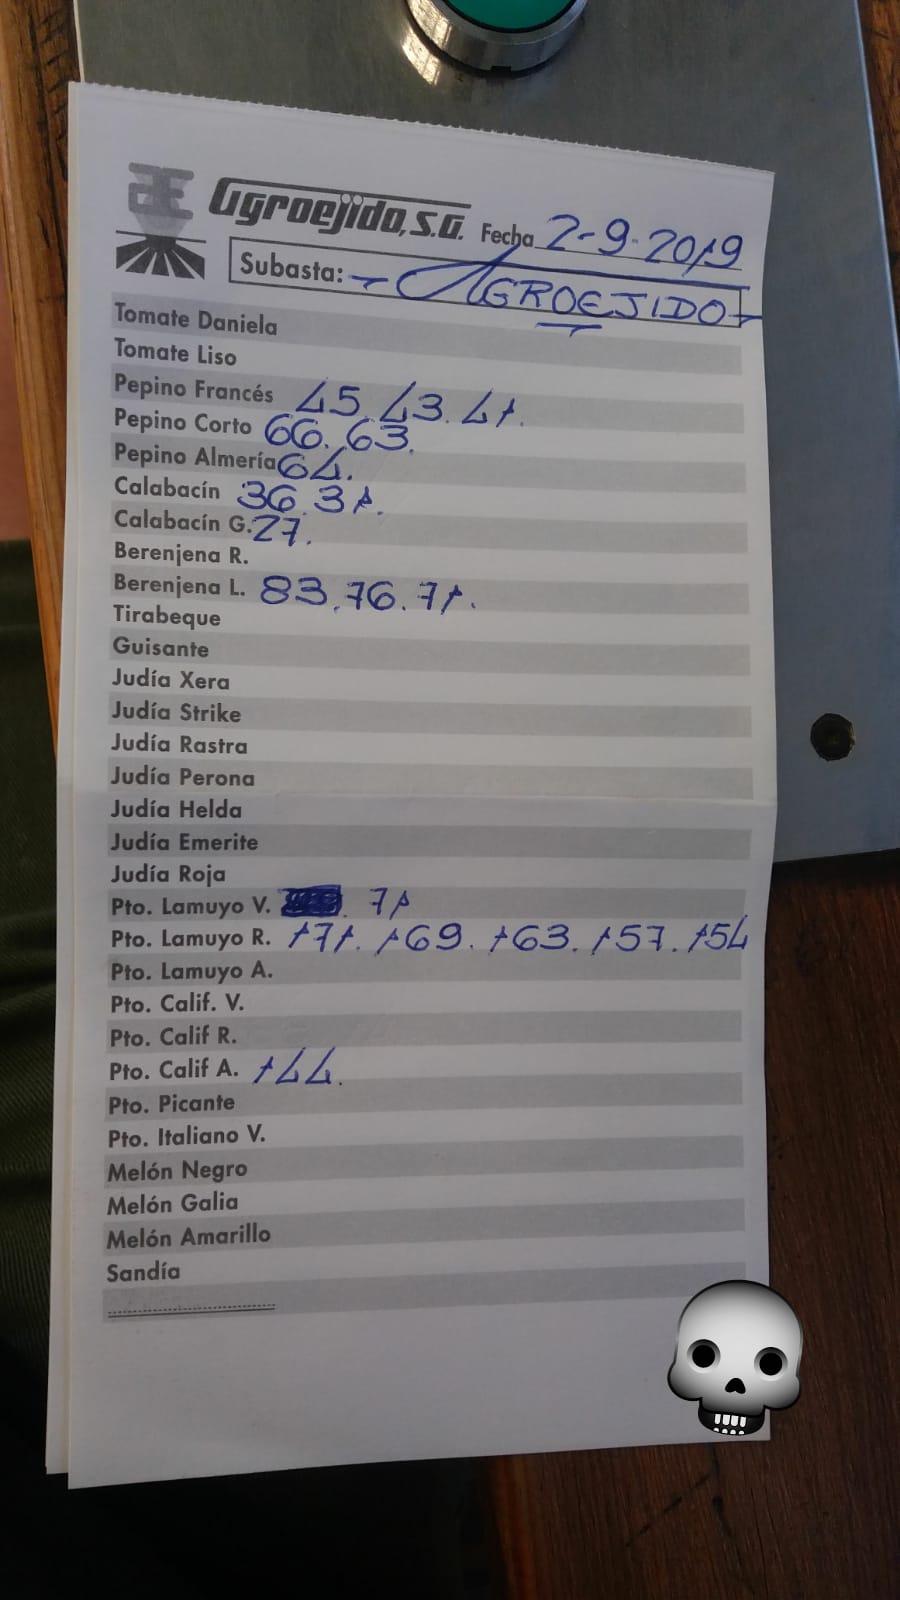 Agroejido, S.A. Fecha 2-9-2019
Subasta: - AGROEJIDO -
Tomate Daniela
Tomate Liso
Pepino Francés 45. 43. 41.
Pepino Corto 66. 63.
Pepino Almería 64.
Calabacín 36. 31.
Calabacín G. 27.
Berenjena R.
Berenjena L. 83. 76. 71.
Tirabeque
Guisante
Judía Xera
Judía Strike
Judía Rastra
Judía Perona
Judía Helda
Judía Emerite
Judía Roja
Pto. Lamuyo V. 71
Pto. Lamuyo R. 171. 169. 163. 157. 154
Pto. Lamuyo A.
Pto. Calif. V.
Pto. Calif R.
Pto. Calif A. 144.
Pto. Picante
Pto. Italiano V.
Melón Negro
Melón Galia
Melón Amarillo
Sandía